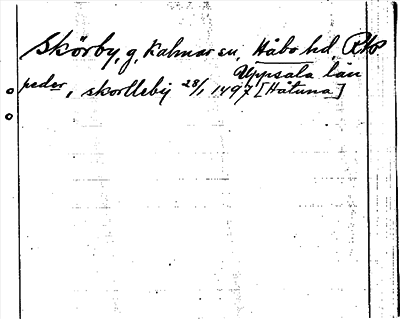 Skörby, g, Kalmar sn, Håbo hd, RAP
Uppsala län
peder, skorlleby 28/1 1497 [Håtuna]